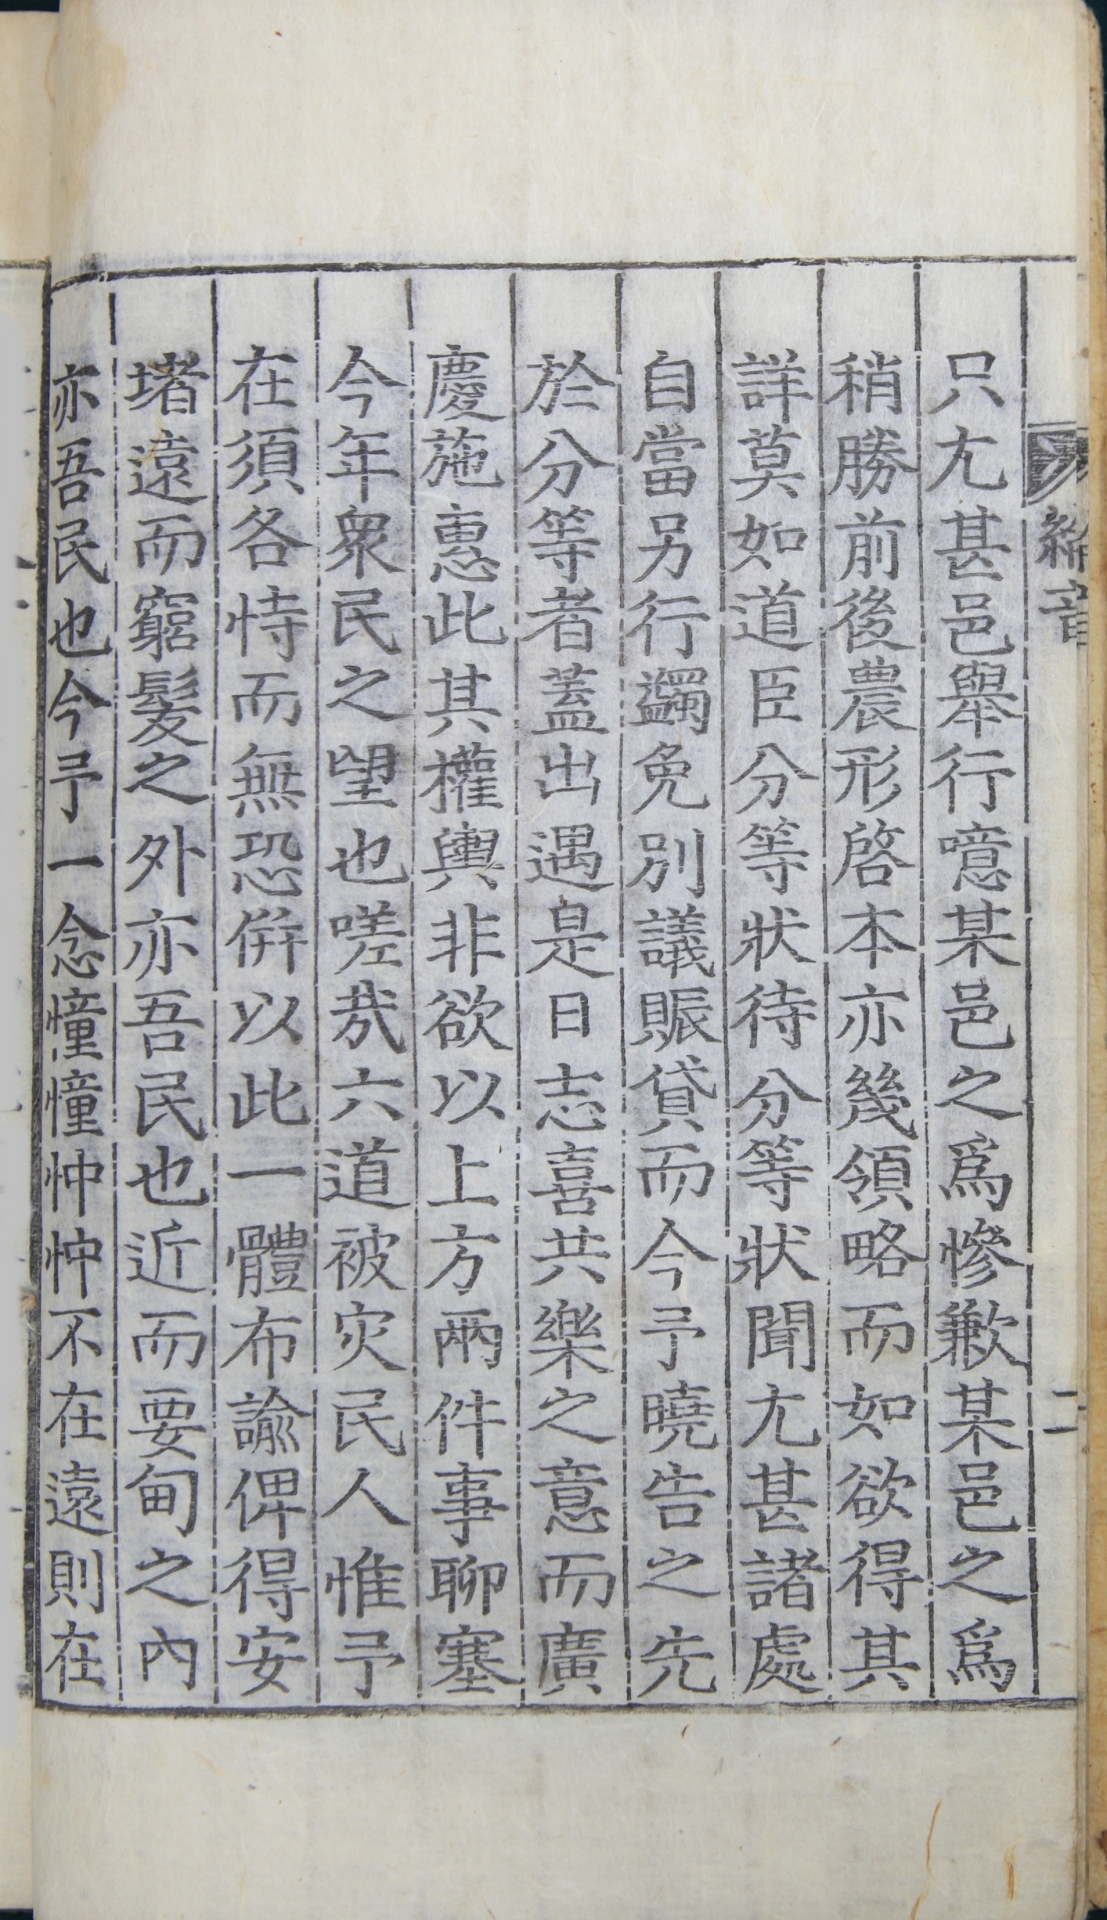 綸音
二
只尤甚邑舉行噫某邑之爲慘歉某邑之爲
稍勝前後農形啓本亦幾領略而如欲得其
詳莫如道臣分等狀待分等狀聞尤甚諸處
自當另行蠲免別議賑貸而今予曉告之先
於分等者蓋出遇是日志喜共樂之意而廣
慶施惠此其權輿非欲以上方兩件事聊塞
今年衆民之望也嗟哉六道被灾民人惟予
在須各恃而無恐倂以此一體布諭俾得安
堵遠而窮髮之外亦吾民也近而要甸之內
亦吾民也今予一念憧憧忡忡不在遠則在